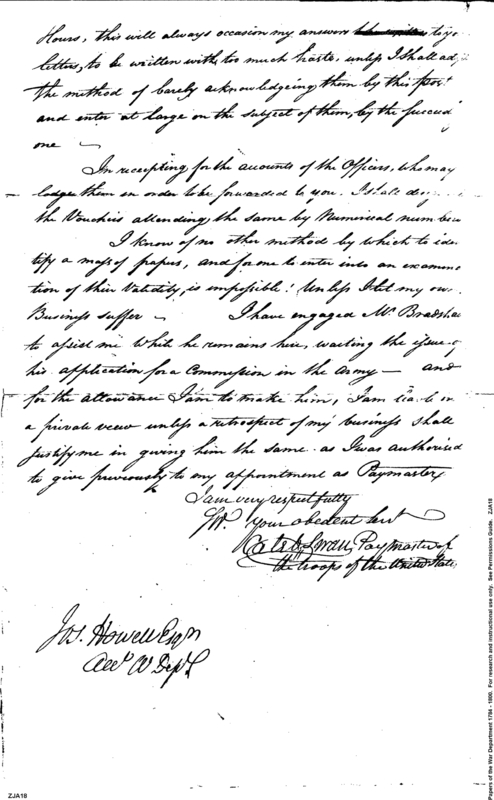 Hours, this will always occasion my answers to yo
letters, to be written with too much haste, unless I shall ad
the method of barely acknowledgeing them by this post
and enter at large on the subject of them, by the succeed
one —
In receipting for the accounts of the Officers, who may
lodge them in order to be forwarded to you. I shall des
the Vouchers attending the same by Numerical numbers
I know of no other method by which to iden
tify a mass of papers, and for me to enter into an examina
tion of their Validity, is impossible! Unless I let my own
Business suffer — I have engaged Mr Bradsha
to assist me while he remains here, waiting the issue of
his application for a Commission in the Army — and
for the allowance I am to make him, I am liable in
a private view unless a retrospect of my business shall
justify me in giving him the same as I was authorised
to give previously to my appointment as Paymaster
I am very respectfully
Sir. Your obedient Servt
Caleb Swan, Paymaster of
the troops of the United States
Jos. Howell Esqr
Acct W Dept
ZJA18
Papers of the War Department 1784 - 1800. For research and instructional use only. See Permissions Guide. ZJA18